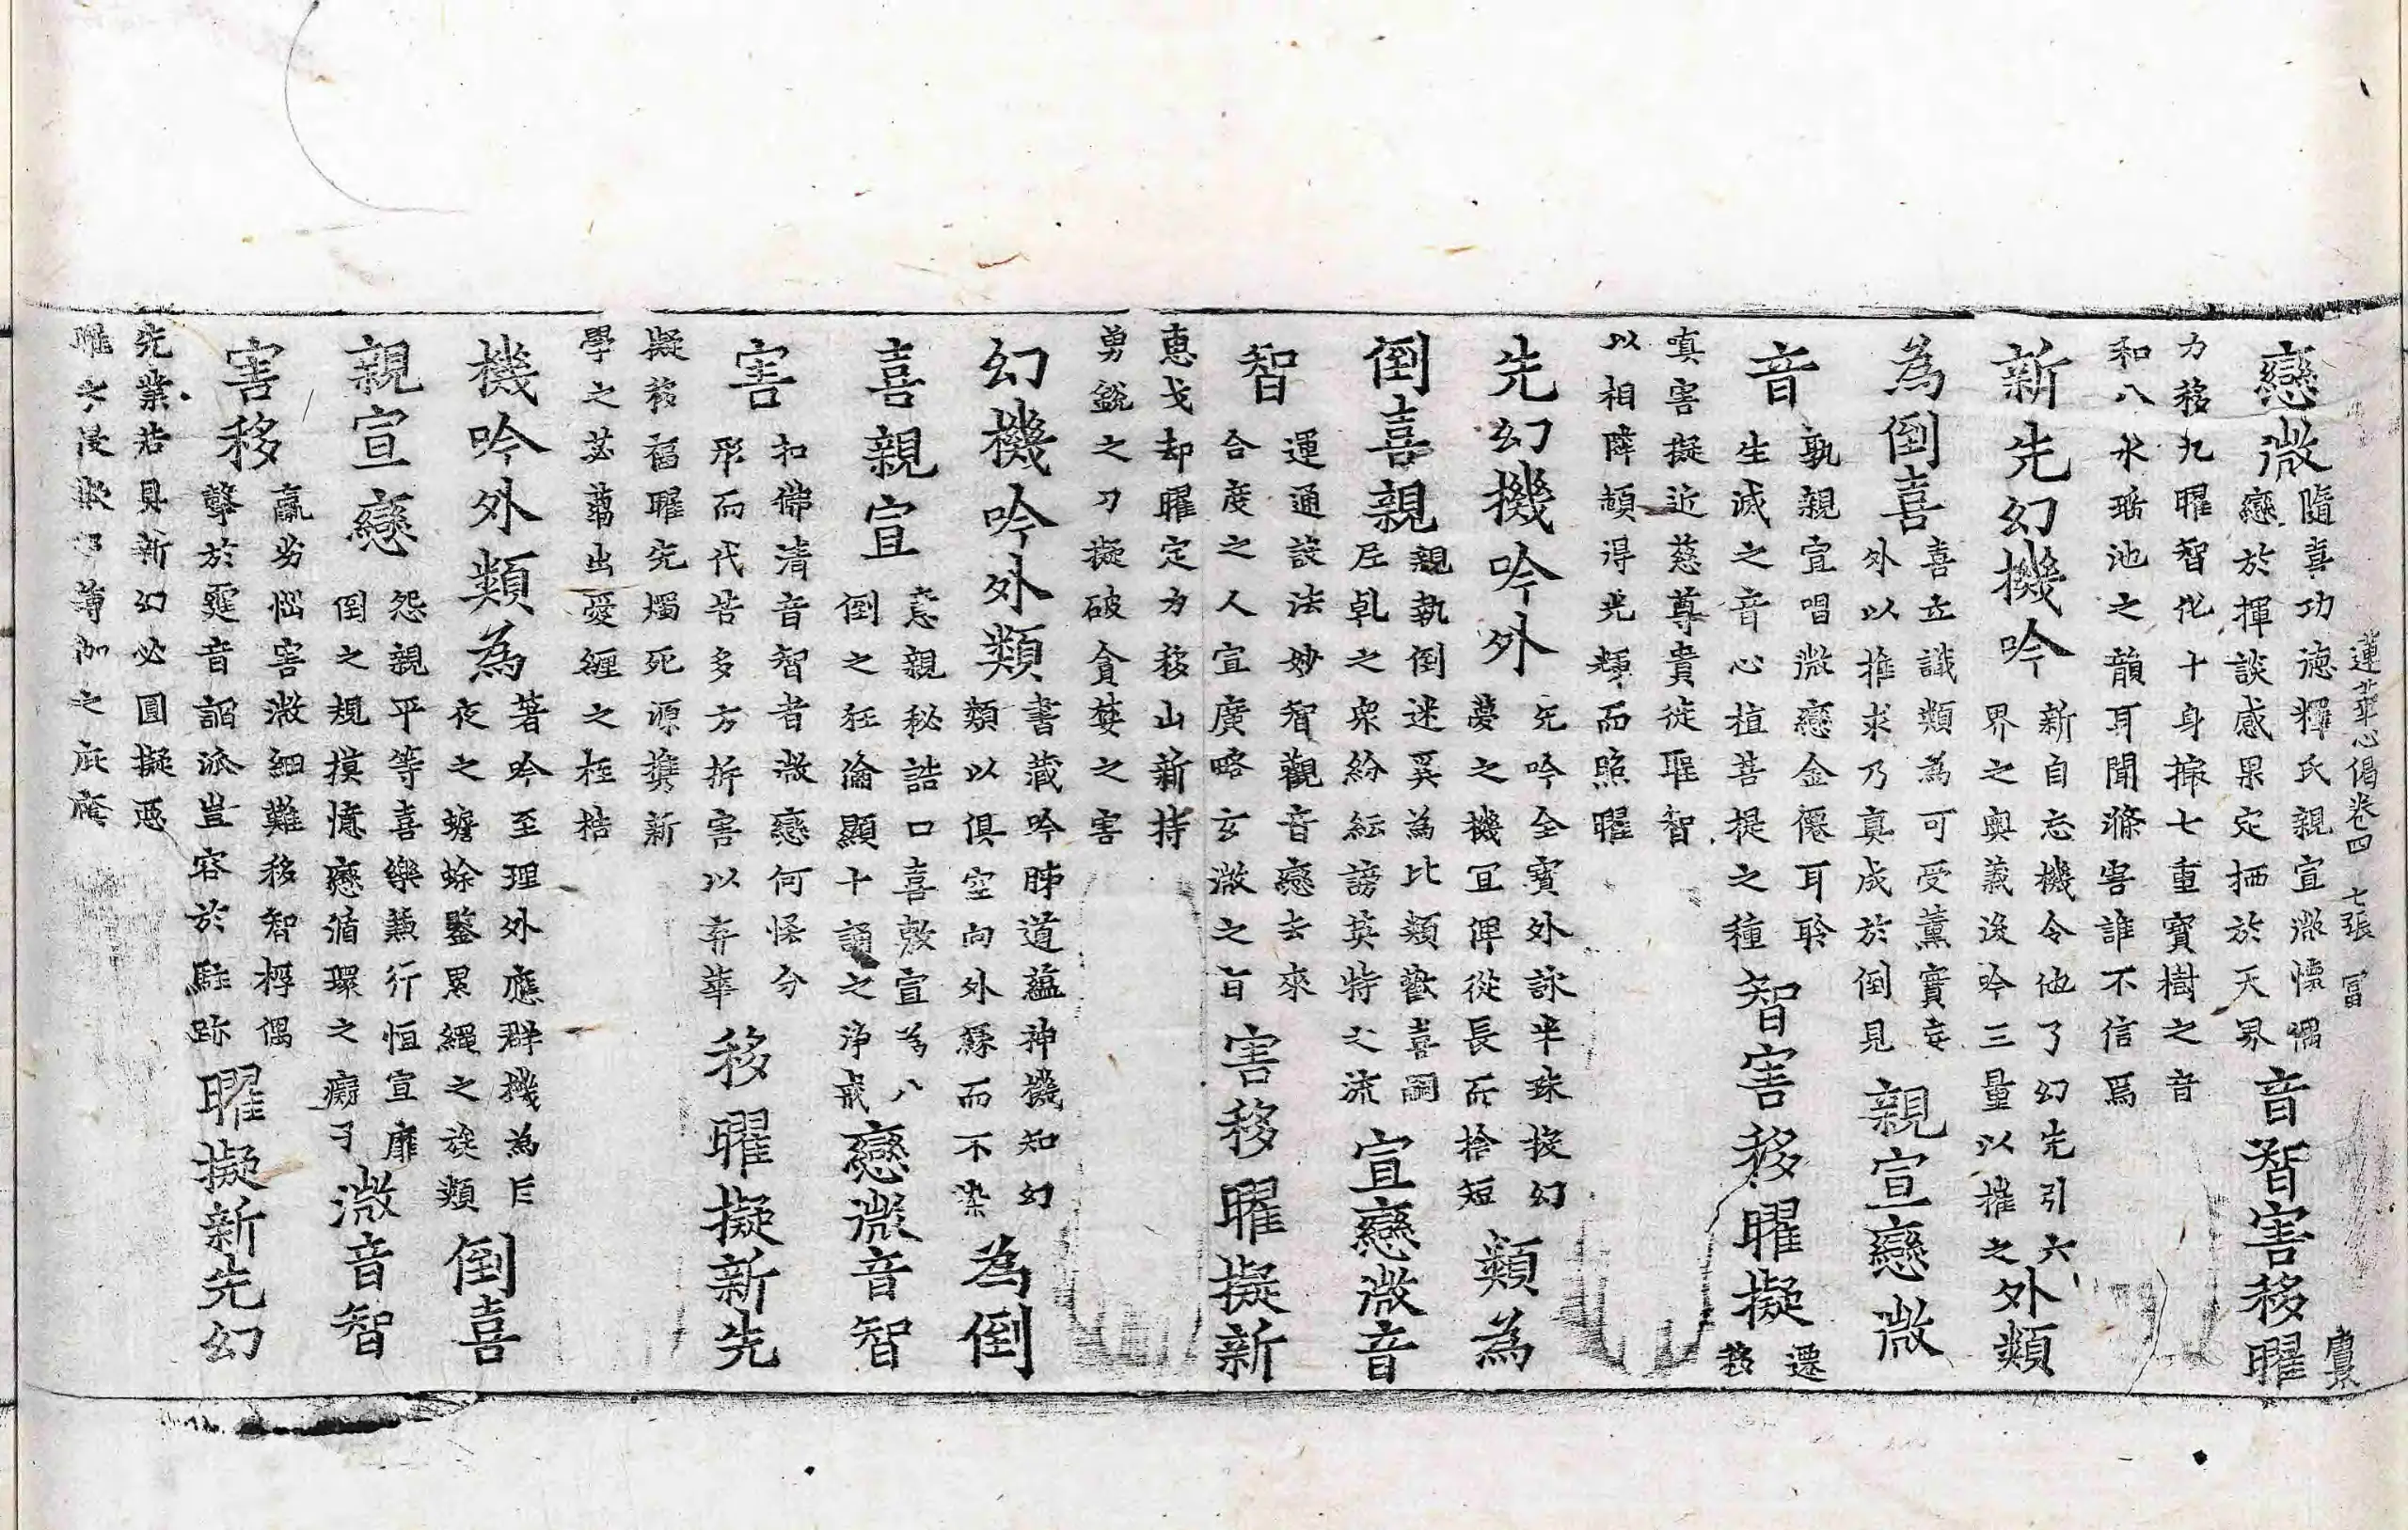 蓮華心偈卷四 七張 冨
戀微
隨喜功德輝氏親宣微懷惆
戀於揮談感果定栖於天界
音智害移曜
力移九曜智化十身搖七重寶樹之音
和八水瑤池之韻耳聞滌害誰不信焉
新先幻機吟
新自忘機令他了幻先引六
界之奧義後吟三量以摧之
外類
為倒喜
喜立識類為可受薰實妄
外以推求乃真成於倒見
親宣戀微
音
孰親宣唱微戀金僊耳聆
生滅之音心植菩提之種
智害移曜擬
遷
嗔害擬近慈尊貴從聖智
以相障頓得光輝而照曜
先幻機吟外
先吟全寶外詠半珠投幻
夢之機冝俾從長而捨短
類為
倒喜親
親執倒迷奚為比類歡喜嗣
之衆紛紜謗英特之流
宣戀微音
智
運通說法妙智觀音戀去來
合度之人宣廣略玄微之旨
害移曜擬新
惠戈却曜定力移山新持
勇銳之刀擬破貪婪之害
幻機吟外類
書藏吟 道蘊神機知幻
類以俱空向外緣而不染
為倒
喜親宣
意親秘誥口喜敷宣為八
倒之狂淪顯十誦之淨戒
戀微音智
害
扣佛清音智者微戀何怪兮
形而代苦多方折害以弃華
移曜擬新先
擬移福曜先燭死源携新
學之苾蒭出愛纏之桎梏
機吟外類為
著吟至理外應群機為
夜之蟾蜍鑒累繩之族類
倒喜
親宣戀
怨親平等喜樂兼行恒宣靡
倒之規摸憶戀循環之癡子
微音智
害移
羸劣惱害微細難移智桴偶
擊於霆音詔派豈容於駐跡
曜擬新先幻
先業若具新幻必圓擬惡
曜之侵 薄伽之庇